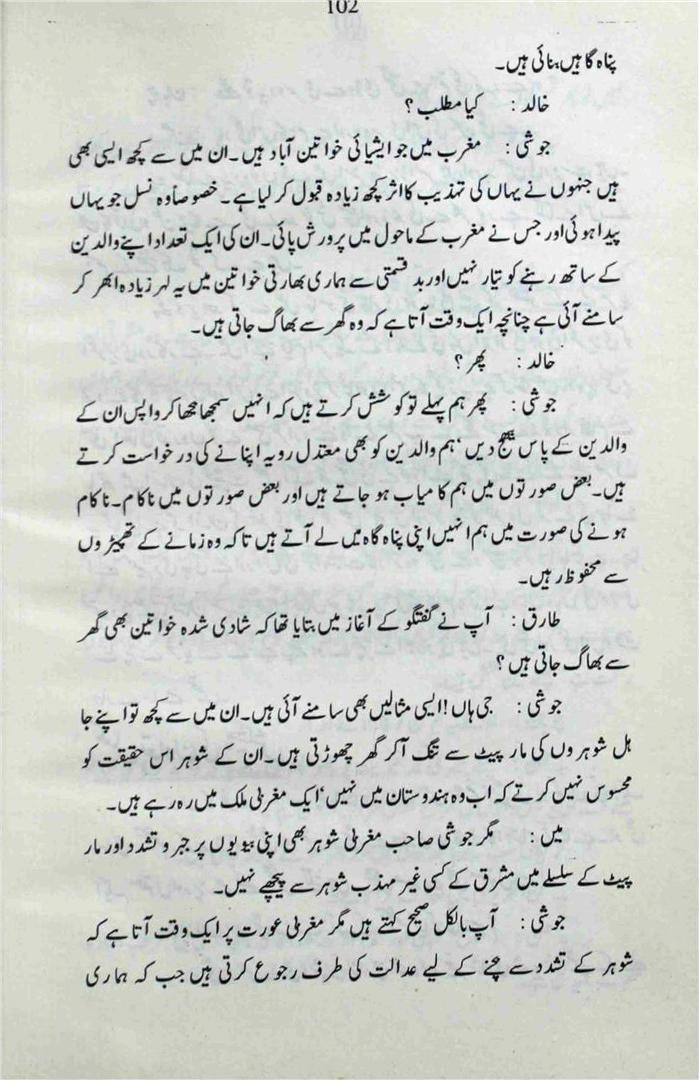 102
پناہ گاہیں بنائی ہیں۔
خالد : کیا مطلب ؟
جوشی : مغرب میں جو ایشیائی خواتین آباد ہیں۔ ان میں سے کچھ ایسی بھی
ہیں جنہوں نے یہاں کی تہذیب کا اثر کچھ زیادہ قبول کر لیا ہے۔ خصوصاً وہ نسل جو یہاں
پیدا ہوئی اور جس نے مغرب کے ماحول میں پرورش پائی۔ ان کی ایک تعداد اپنے والدین
کے ساتھ رہنے کو تیار نہیں اور بد قسمتی سے ہماری بھارتی خواتین میں یہ لہر زیادہ ابھر کر
سامنے آئی ہے چنانچہ ایک وقت آتا ہے کہ وہ گھر سے بھاگ جاتی ہیں۔
خالد : پھر ؟
جوشی : پھر ہم پہلے تو کوشش کرتے ہیں کہ انہیں سمجھا بجھا کر واپس ان کے
والدین کے پاس بھیج دیں‘ ہم والدین کو بھی معتدل رویہ اپنانے کی درخواست کرتے
ہیں۔ بعض صورتوں میں ہم کامیاب ہو جاتے ہیں اور بعض صورتوں میں ناکام۔ ناکام
ہونے کی صورت میں ہم انہیں اپنی پناہ گاہ میں لے آتے ہیں تاکہ وہ زمانے کے تھپیڑوں
سے محفوظ رہیں۔
طارق : آپ نے گفتگو کے آغاز میں بتایا تھا کہ شادی شدہ خواتین بھی گھر
سے بھاگ جاتی ہیں ؟
جوشی : جی ہاں ! ایسی مثالیں بھی سامنے آئی ہیں۔ ان میں سے کچھ تو اپنے جا
ہل شوہروں کی مار پیٹ سے تنگ آکر گھر چھوڑتی ہیں۔ ان کے شوہر اس حقیقت کو
محسوس نہیں کرتے کہ اب وہ ہندوستان میں نہیں‘ ایک مغربی ملک میں رہ رہے ہیں۔
میں : مگر جوشی صاحب مغربی شوہر بھی اپنی بیویوں پر جبر و تشدد اور مار
پیٹ کے سلسلے میں مشرق کے کسی غیر مہذب شوہر سے پیچھے نہیں۔
جوشی : آپ بالکل صحیح کہتے ہیں مگر مغربی عورت پر ایک وقت آتا ہے کہ
شوہر کے تشدد سے بچنے کے لیے عدالت کی طرف رجوع کرتی ہیں جب کہ ہماری